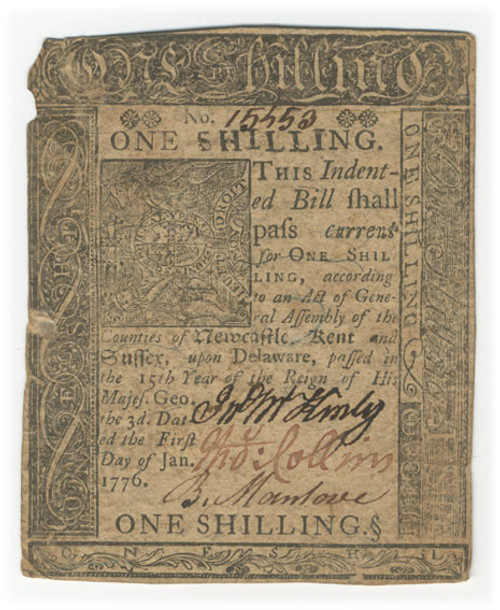 One Shilling
No. 15553
ONE SHILLING.
THIS Indent-
ed Bill ſhall
paſs current
for ONE SHIL
LING, according
to an Act of Gene-
ral Aſſembly of the
Counties of Newcaſtle, Kent and
Suſſex, upon Delaware, paſſed in
the 15th Year of the Reign of His
Majeſ. Geo.
the 3d. Dat-
ed the Firſt
Day of Jan.
1776.
Jno McKinly
Thos: Collins
B. Manlove
ONE SHILLING.§
ONE SHILLING
ONE SHIL
O N E S H I L